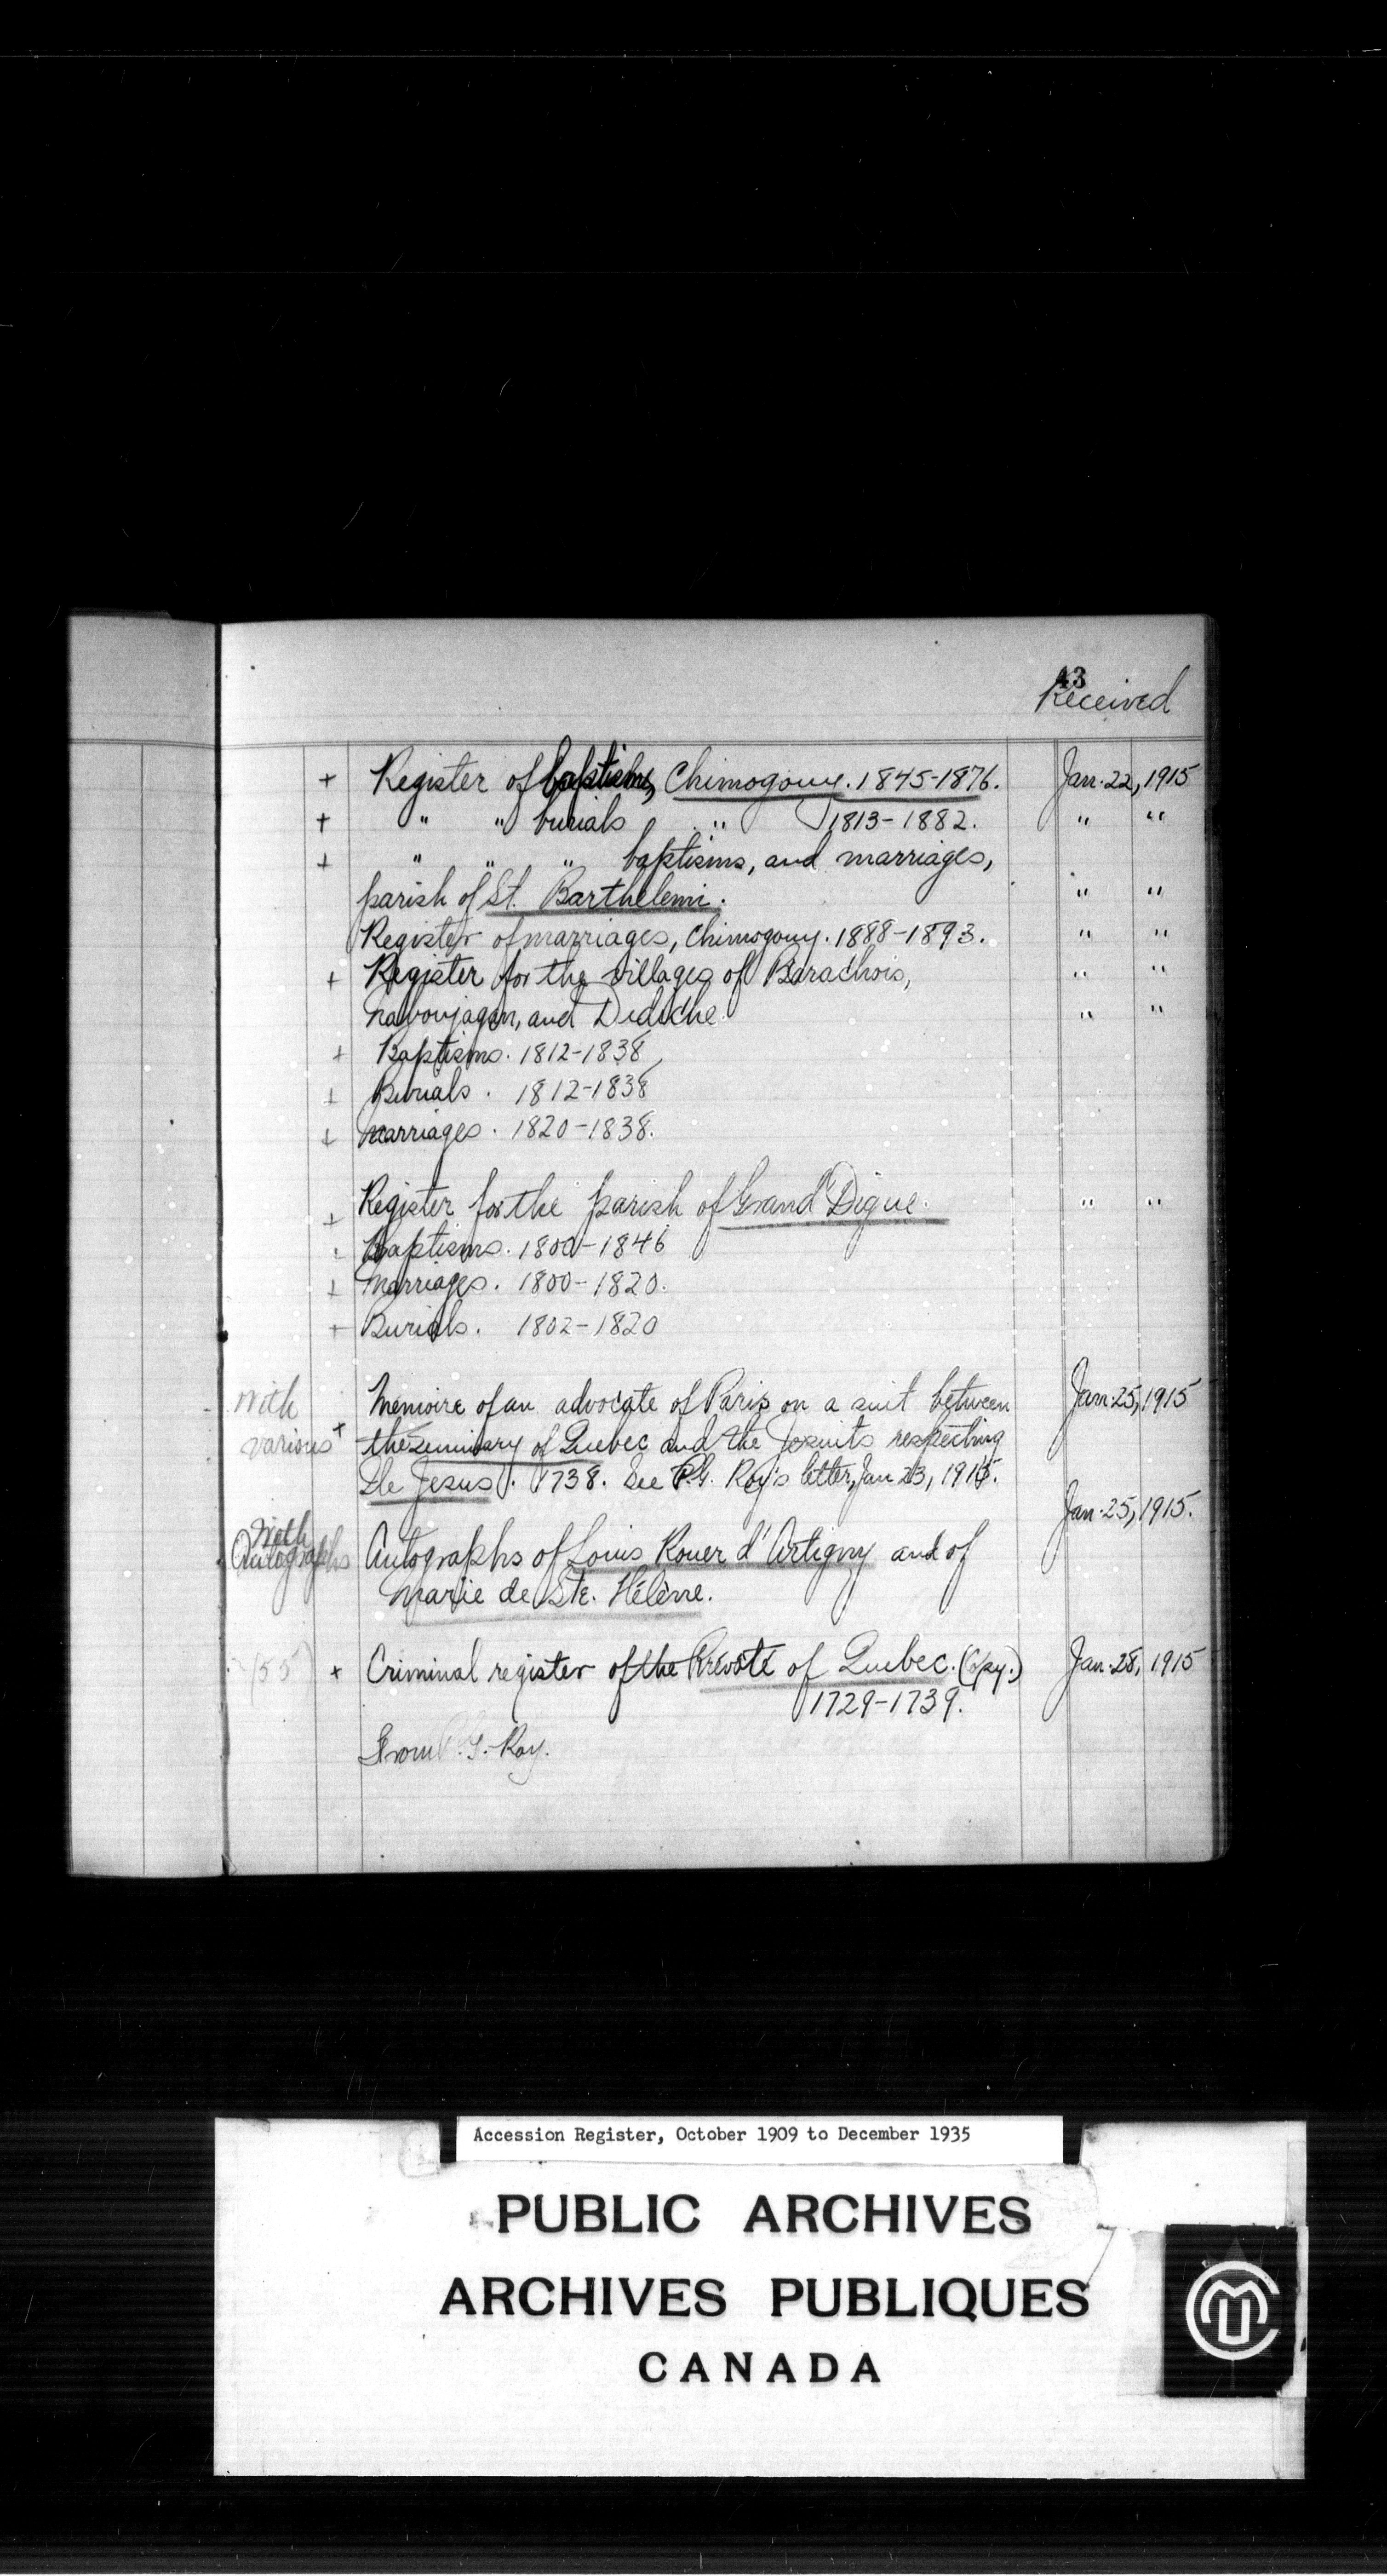 43
Received
+ Register of baptisms, Chimogouy. 1845-1876. Jan. 22, 1915
+ " " burials " 1813-1882. " "
+ " " " baptisms, and marriages,
parish of St. Barthelemi. " "
Register of marriages, Chimogouy. 1888-1893. " "
+ Register for the villages of Barachois, " "
and Didiche. " "
+ Baptisms. 1812-1838
+ Burials. 1812-1838
+ Marriages. 1820-1838.
+ Register for the parish of Grand'Digue. " "
Baptisms. 1800-1846
+ Marriages. 1800-1820.
+ Burials. 1802-1820
With Memoire of an advocate of Paris on a suit between Jan. 25, 1915
various + the Seminary of Quebec and the Jesuits respecting
Ile Jesus. 1738. See P.G. Roy's letter, Jan 23, 1915.
Jan. 25, 1915.
With
Autographs Autographs of Louis Rouer d'Artigny and of
Marie de Ste. Hélène.
(55) + Criminal register of the Prévoté of Quebec. (Copy.) Jan. 28, 1915
1729-1739.
From P.G. Roy.
Accession Register, October 1909 to December 1935
PUBLIC ARCHIVES
ARCHIVES PUBLIQUES
CANADA